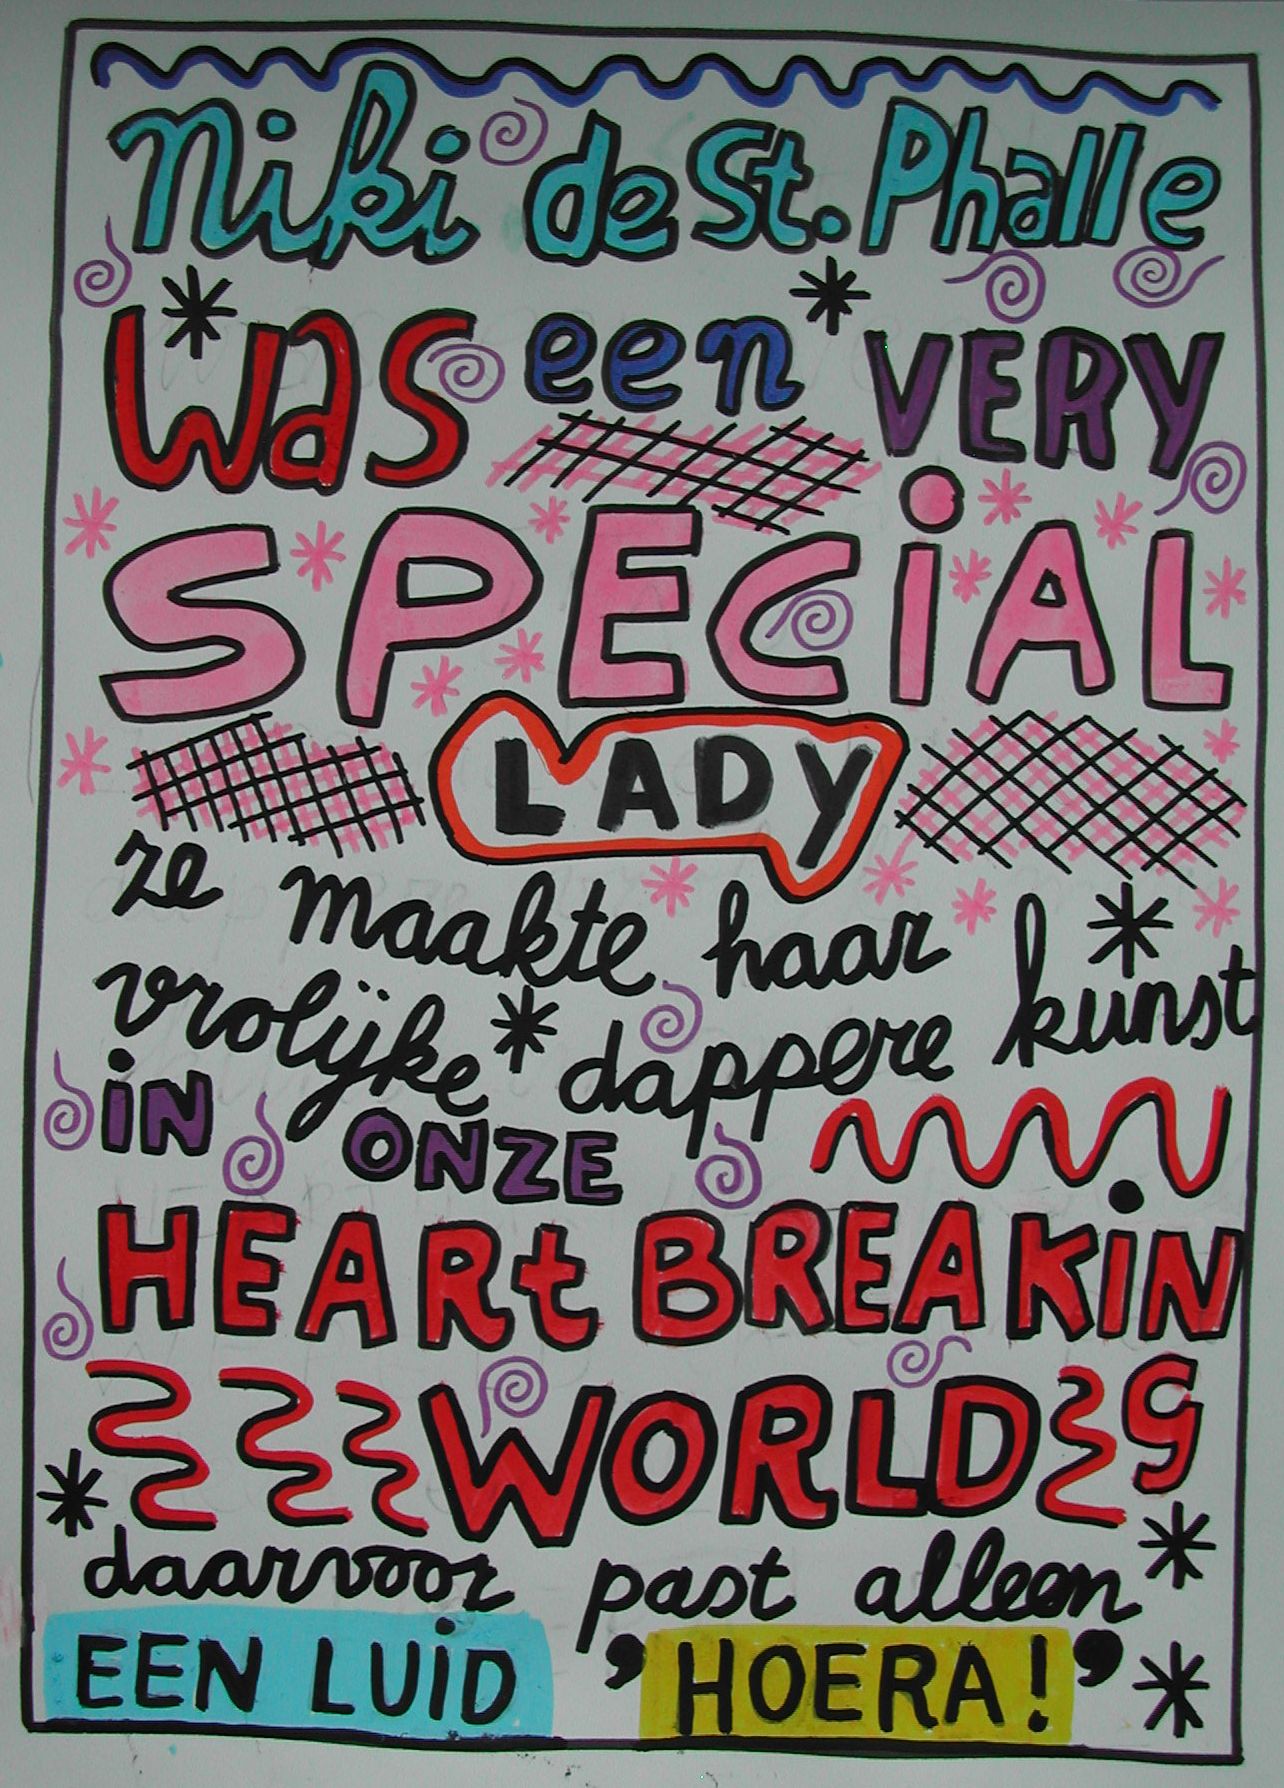 Niki de St. Phalle
was een VERY
SPECiAL
LADY
ze maakte haar
vrolijke dappere kunst
iN ONZE
HEARt BREAKiN
WORLD G
daarvoor past alleen
EEN LUiD 'HOERA!'